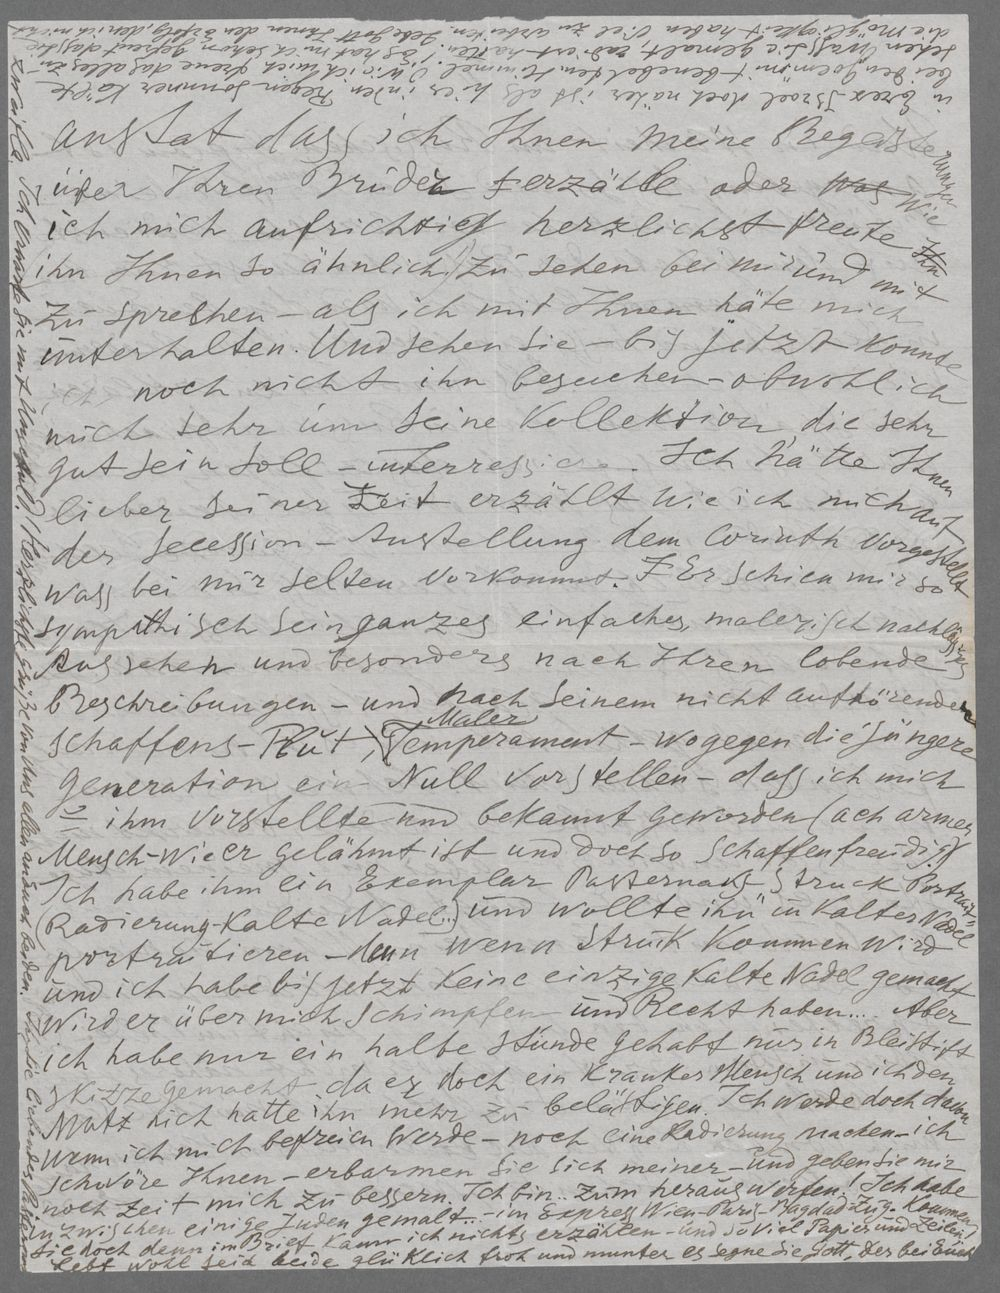 anstat dass ich Ihnen meine Begeiste
rungen
über Ihren Bruder erzälle oder Was Wie
ich mich aufrichtig herzlichst freute Ihn
ihn Ihnen so ähnlich) zu sehen bei mir und mit
zu spreshen – als ich mit Ihnen häte mich
unterhalten. Und sehen Sie – bis jetzt konnde
ich noch nicht ihn besuchen – obwohl ich
mich sehr um seine Kollektion, die sehr
gut sein soll – interressiere. Ich hätte Ihnen
lieber seiner Zeit erzählt wie ich mich auf
der Secession – Austellung dem Corinth vorgestellt
wass bei mir selten vorkommt. Er schien mir so
sympathisch sein ganzes einfaches, malerisch nachlässiges
Aussehen und besonders nach Ihren lobende
Beschreibungen – und nach seinem nicht aufhörenden
Maler
schaffens – Temperament – wogegen die jüngere
Generation ein Null vorstellen – dass ich mich
ihm vorstellte und bekannt geworden (ach armer
Mensch – wie er gelähmt ist und doch so schaffenfreudig)
Ich habe ihm ein Exemplar Pasternaks Struck Porträt
(Radierung – Kalte Nadel..) und wollte ihn in Kalter Nadel
porträitieren – denn wenn Struk kommen wird
und ich habe bis jetzt keine einzige Kalte Nadel gemacht
wird er über mich schimpfen – und Recht haben... Aber
ich habe nur ein halbe stunde gehabt nur in Bleistift
skitze gemacht da er doch ein kranker Mensch und ich den
Mutz nich hatte ihn mehr zu belästigen. Ich werde doch davon
wenn ich mich befreien werde – noch eine Radierung machen – ich
schwöre Ihnen – erbarmen Sie sich meiner – und geben Sie mir
noch Zeit mich zu bessern. Ich bin.. zum herauswerfen! Ich habe
inzwischen einige Juden gemalt.. – im Express Wien-Paris-Bagdad Zug. Kommen
Sie doch denn im Brief kann ich nichts erzählen – und so viel Papier und Zeilen!
lebt wohl seid beide glücklich froh und munter es segne Sie Gott, der bei Euch
in Erez Israel doch näher ist als hier in den Regen Sommer Kälte
sehen wass Sie gemalt, radiert hatten! Es hat mich schon gefreut dass Sie
die Möglichkeit haben viel zu arbeiten. Gebe Gott Ihnen den Erfolg, den ich nicht
zweifle. Ich
Herzlichste Grüße von uns allen an Euch beiden.